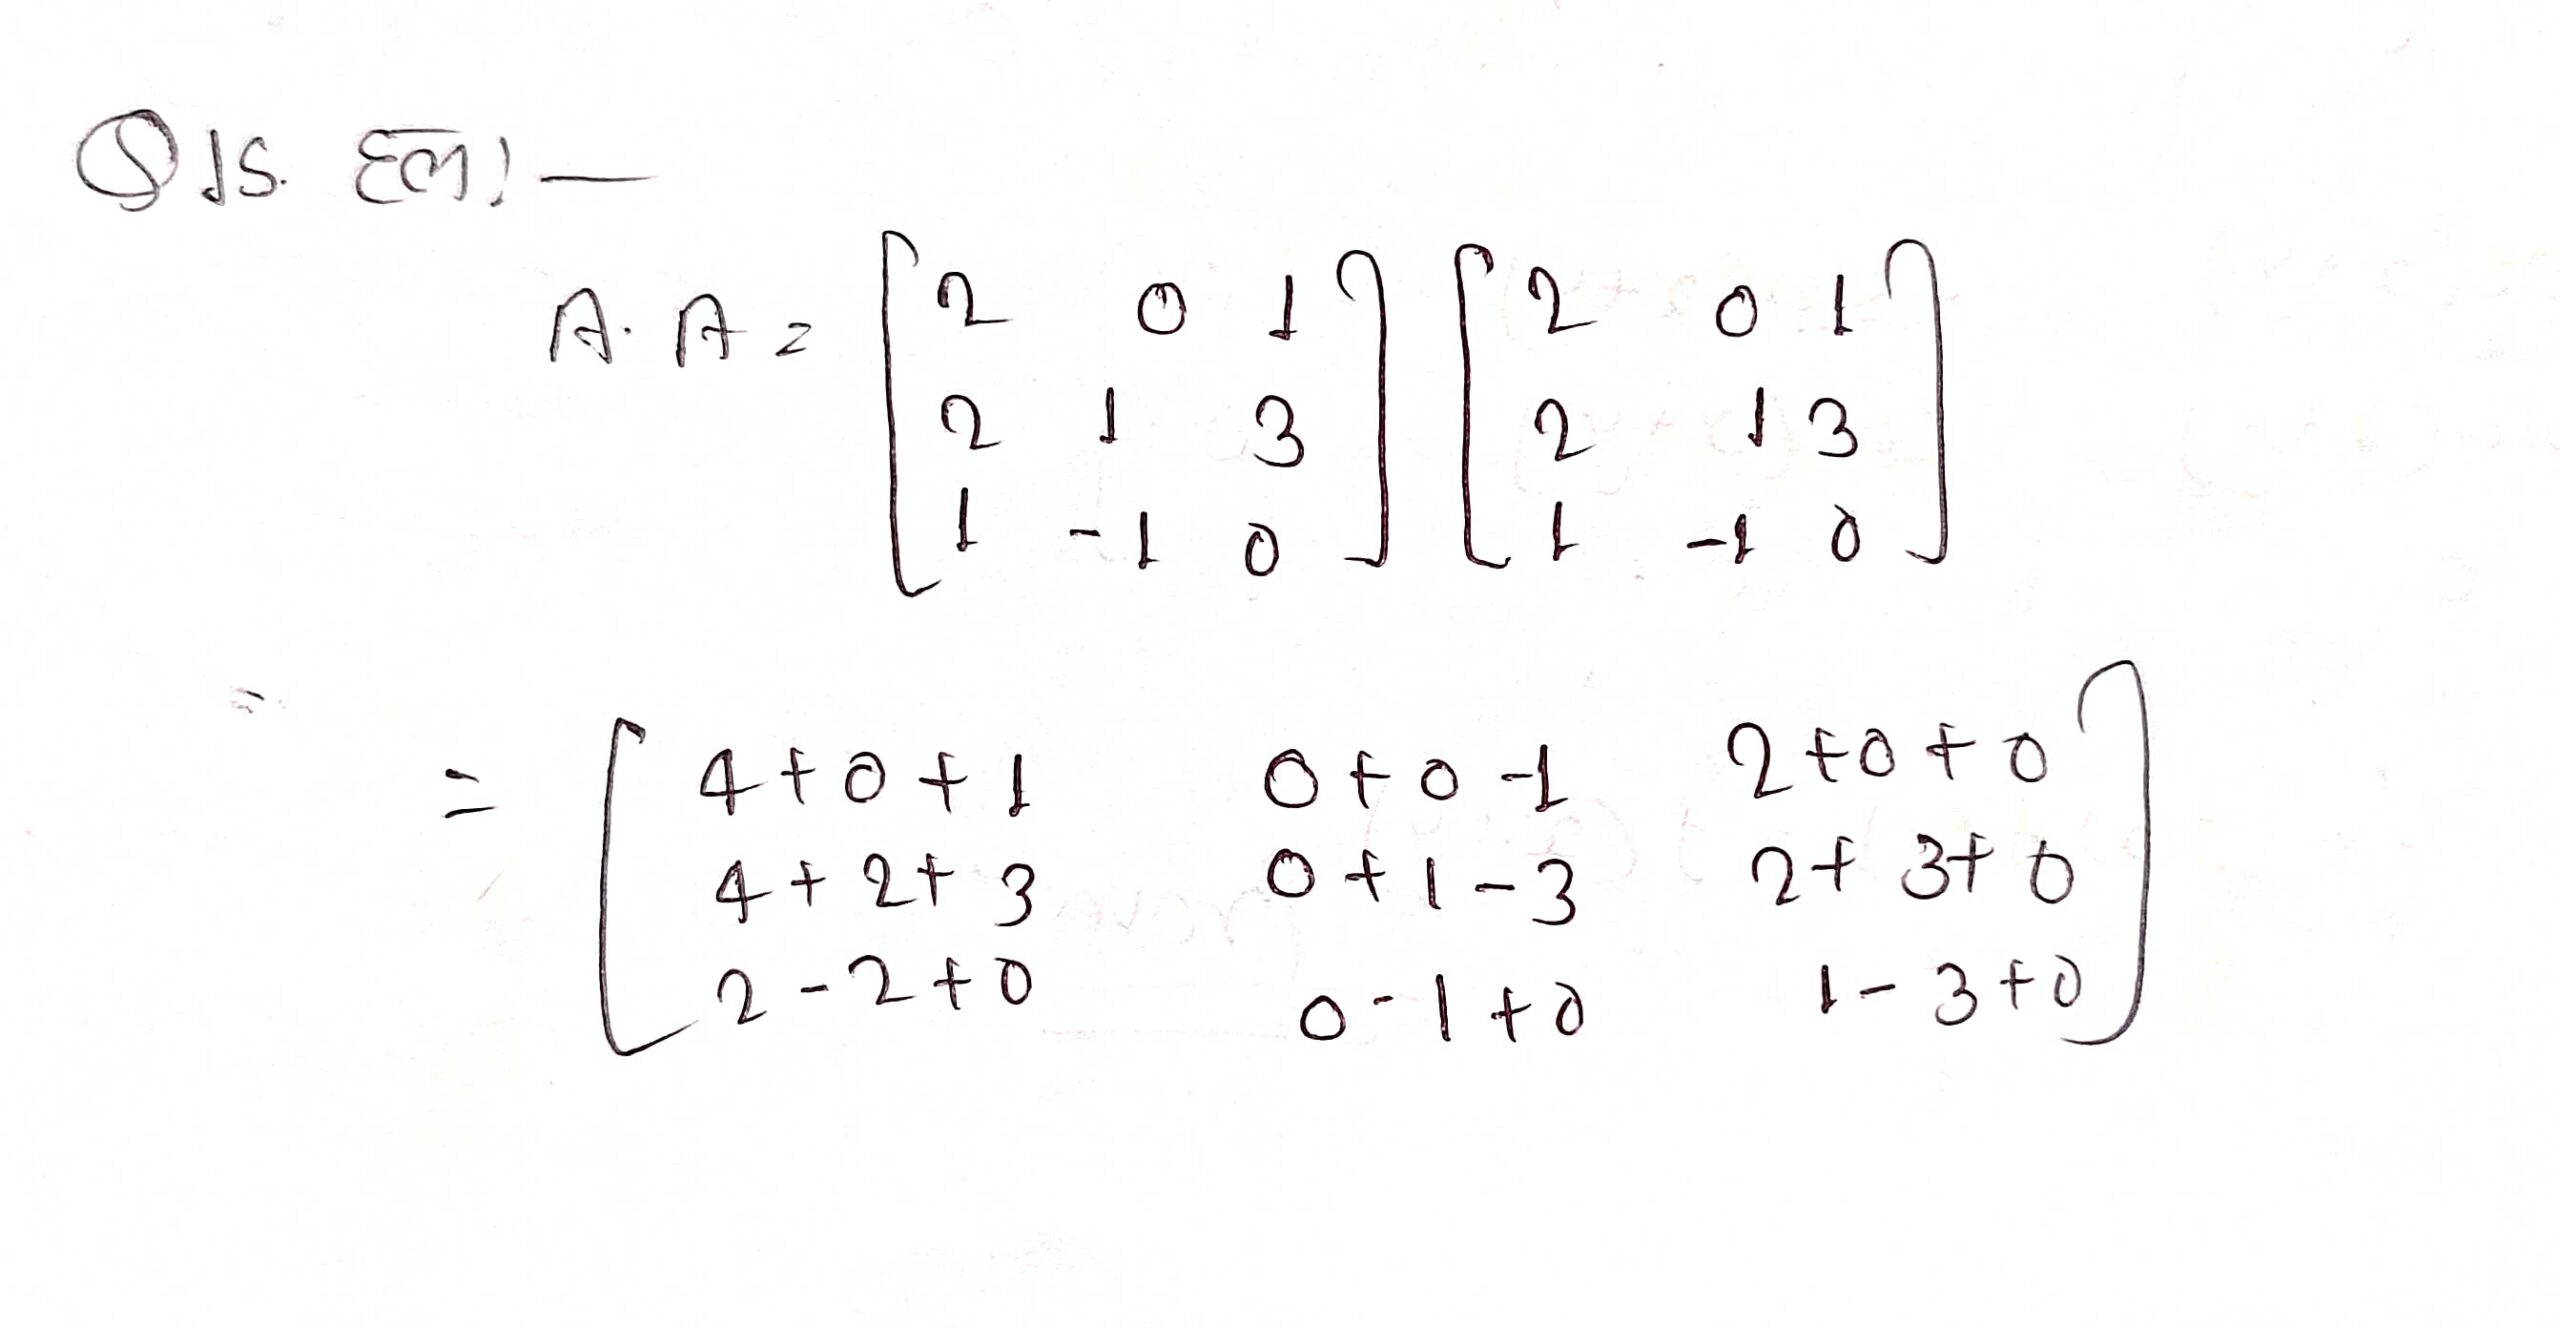 Q 15. हल:—
A. A = [2 0 1] [2 0 1]
[2 1 3] [2 1 3]
[1 -1 0] [1 -1 0]
= [4+0+1 0+0-1 2+0+0]
[4+2+3 0+1-3 2+3+0]
[2-2+0 0-1+0 1-3+0]